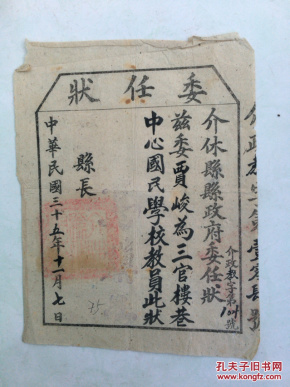 委任狀
介休縣縣政府委任狀
介政教字第 號
茲委賈峻為三官樓巷
中心國民學校教員此狀
縣長
中華民國三十五年十一月七日